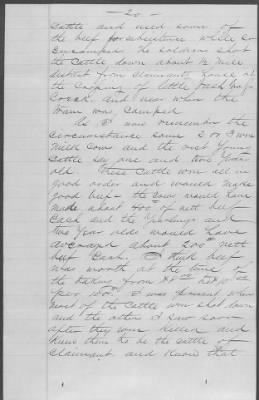 - 20 -
cattle and used some of
the beef for subsistence while so
Encamped. The soldiers shot
the cattle down about ½ mile
distant from Claimants house at
the crossing of little
Creek and near where the
train was camped.
As I now remember the
circumstance some 2 or 3 were
Milch Cows and the rest young
cattle say one and two years
old. These cattle were all in
good order and would make
good beef. the Cows would have
made about 400 lbs nett beef
Each and the Yearlings and
two Year olds would have
averaged about 200 lbs nett
beef Each. I think beef
was worth at the time of
the taking from to
per 100 lbs. I was present when
most of the cattle were shot down
and the others I saw soon
after they were killed and
knew them to be the cattle of
Claimant and know that